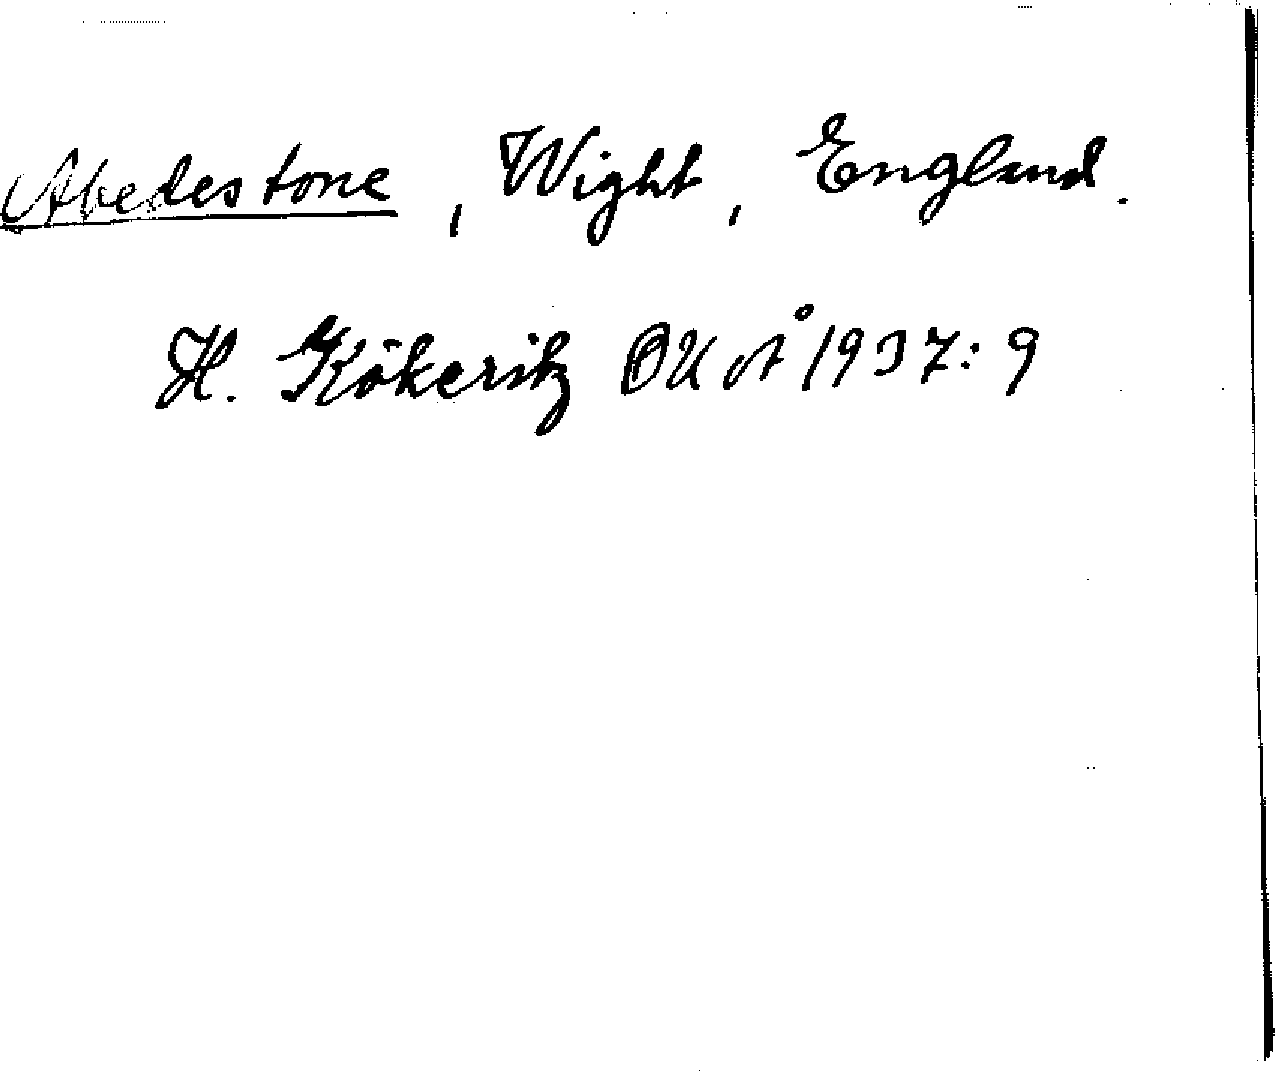 Abedestone, Wight, England.
H. Kökeritz OUÅ 1937:9